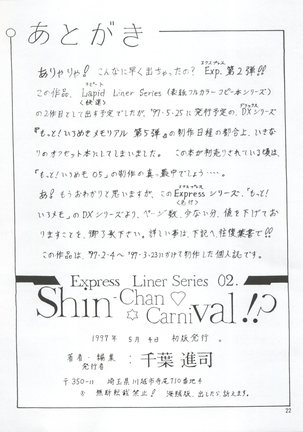 あとがき
ありゃりゃ!こんなに早く出ちゃったの?Exp.第2弾!!
この作品、Lapid Liner Series(表紙フルカラーコピー本シリーズ)
の2作目として出す予定でしたが、'97・5・25に発行予定の、DXシリーズ
『もっと!いろめきメモリアル 第5弾』の制作日程の都合上、いきな
りのオフセット本にしてしまいました。この本が初売りされている頃は、
「もっと!いろめも 05」の制作の真っ最中でしょう・・・・。
あ!もうおわかりと思いますが、このExpressシリーズ、「もっと!
いろメも」のDXシリーズより、ページ数、少ない分、値を下げてお
りますことを、御了承下さい。詳しい事は、下記へ、往復葉書で!!
この作品は、'97・2・4〜'97・3・23にかけて制作した個人誌です。
Express Liner Series 02.
Shin-Chan♡
☆Carnival!!?
1997年 5月 4日 初版発行。
著者・編集
発行者:千葉進司
〒350-11 埼玉県川越市寺尾710番地4
※ 無断転載禁止! 海賊版、出したら、訴えます。
22